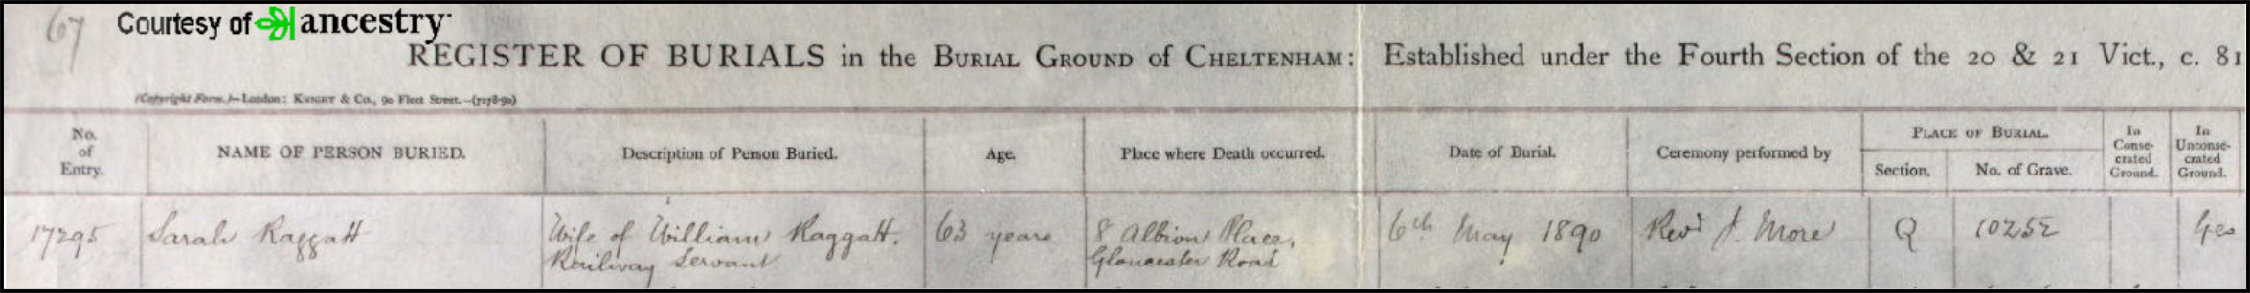 67
Courtesy of ancestry
REGISTER OF BURIALS in the BURIAL GROUND of CHELTENHAM: Established under the Fourth Section of the 20 & 21 Vict., c. 81
(Copyright Form.)—London: KNIGHT & Co., 90 Fleet Street.—(7178-90)
No. of Entry.
NAME OF PERSON BURIED.
Description of Person Buried.
Age.
Place where Death occurred.
Date of Burial.
Ceremony performed by
PLACE OF BURIAL.
Section.
No. of Grave.
In Conse-
crated
Ground.
In
Unconse-
crated
Ground.
17295
Sarah Raggatt
Wife of William Raggatt.
Railway Servant
63 years
8 Albion Place,
Gloucester Road
6th May 1890
Revd J. More
Q
10252
Yes